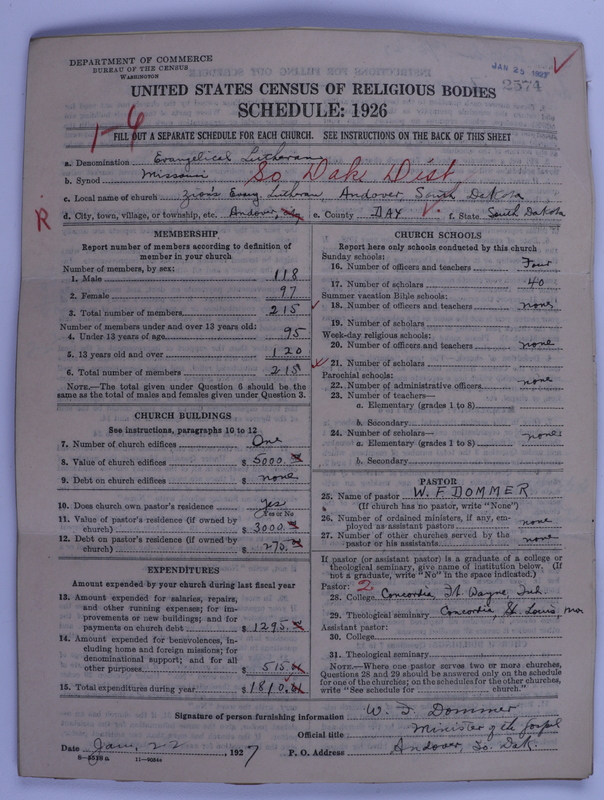 DEPARTMENT OF COMMERCE
BUREAU OF THE CENSUS
WASHINGTON
JAN 25 1927
2574
UNITED STATES CENSUS OF RELIGIOUS BODIES
SCHEDULE: 1926
1-6
FILL OUT A SEPARATE SCHEDULE FOR EACH CHURCH. SEE INSTRUCTIONS ON THE BACK OF THIS SHEET
a. Denomination Evangelical Lutheran
b. Synod Missouri So Dak Dist
c. Local name of church Zion's Evang Lutheran, Andover, South Dakota
R d. City, town, village, or township, etc. Andover, e. County DAY f. State South Dakota
MEMBERSHIP
Report number of members according to definition of
member in your church
Number of members, by sex:
1. Male 118
2. Female 97
3. Total number of members 215
Number of members under and over 13 years old:
4. Under 13 years of age 95
5. 13 years old and over 120
6. Total number of members 215
NOTE.—The total given under Question 6 should be the
same as the total of males and females given under Question 3.
CHURCH BUILDINGS
See instructions, paragraphs 10 to 12
7. Number of church edifices One
8. Value of church edifices $ 5000.
9. Debt on church edifices $ none
10. Does church own pastor's residence yes
Yes or No
11. Value of pastor's residence (if owned by
church) $ 3000.
12. Debt on pastor's residence (if owned by
church) $ 275.
EXPENDITURES
Amount expended by your church during last fiscal year
13. Amount expended for salaries, repairs,
and other running expenses; for im-
provements or new buildings; and for
payments on church debt $ 1295.
14. Amount expended for benevolences, in-
cluding home and foreign missions; for
denominational support; and for all
other purposes $ 515.
15. Total expenditures during year $ 1810.
CHURCH SCHOOLS
Report here only schools conducted by this church
Sunday schools:
16. Number of officers and teachers Four
17. Number of scholars 40
Summer vacation Bible schools:
18. Number of officers and teachers none
19. Number of scholars
Week-day religious schools:
20. Number of officers and teachers none
21. Number of scholars
Parochial schools:
22. Number of administrative officers none
23. Number of teachers—
a. Elementary (grades 1 to 8)
b. Secondary
24. Number of scholars—
a. Elementary (grades 1 to 8) none
b. Secondary
PASTOR
25. Name of pastor W. F. DOMMER
(If church has no pastor, write "None")
26. Number of ordained ministers, if any, em-
ployed as assistant pastors none
27. Number of other churches served by the
pastor or his assistants none
If pastor (or assistant pastor) is a graduate of a college or
theological seminary, give name of institution below. (If
not a graduate, write "No" in the space indicated.)
Pastor: 2
28. College Concordia, Ft. Wayne, Ind.
29. Theological seminary Concordia, St. Louis, Mo
Assistant pastor:
30. College
31. Theological seminary
NOTE.—Where one pastor serves two or more churches,
Questions 28 and 29 should be answered only on the schedule
for one of the churches; on the schedules for the other churches,
write "See schedule for church."
Signature of person furnishing information W. F. Dommer
Official title Minister of the Gospel
Date Jan, 22, 1927 P. O. Address Andover, So. Dak.